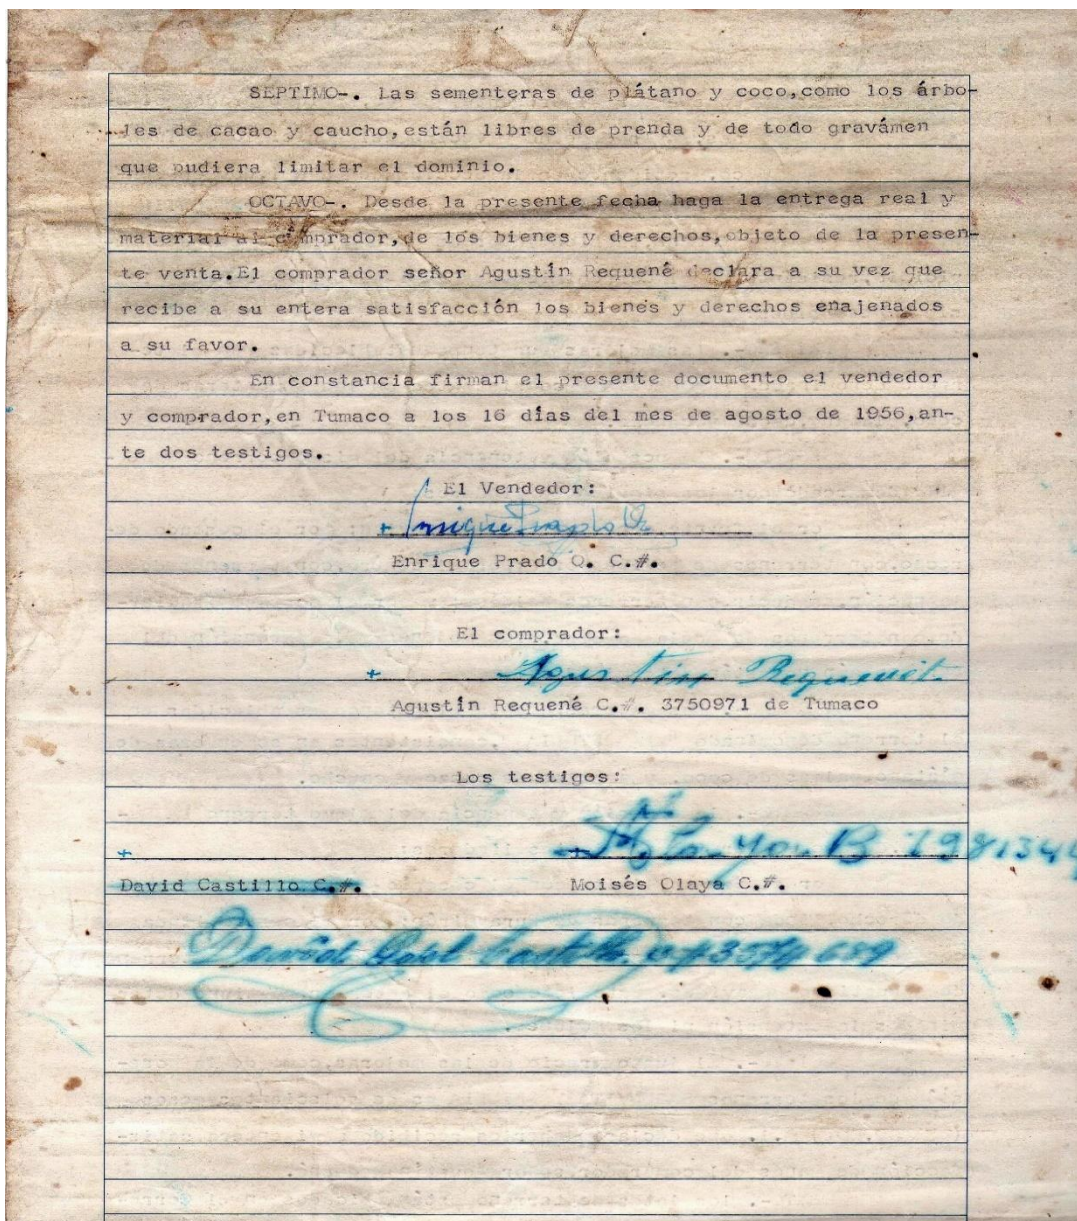 SEPTIMO-. Las sementeras de plátano y coco,como los árbo-
les de cacao y caucho,están libres de prenda y de todo gravámen
que pudiera limitar el dominio.
OCTAVO-. Desde la presente fecha haga la entrega real y
material al comprador,de los bienes y derechos,objeto de la presen-
te venta.El comprador señor Agustín Requené declara a su vez que
recibe a su entera satisfacción los bienes y derechos enajenados
a su favor.
En constancia firman el presente documento el vendedor
y comprador,en Tumaco a los 16 días del mes de agosto de 1956,an-
te dos testigos.
El Vendedor:
+ Enrique
Enrique Prado O. C.#.
El comprador:
+ Agustin Requenet
Agustín Requené C.#. 3750971 de Tumaco
Los testigos:
+ + B
David Castillo C.#. Moisés Olaya C.#.
David Castillo